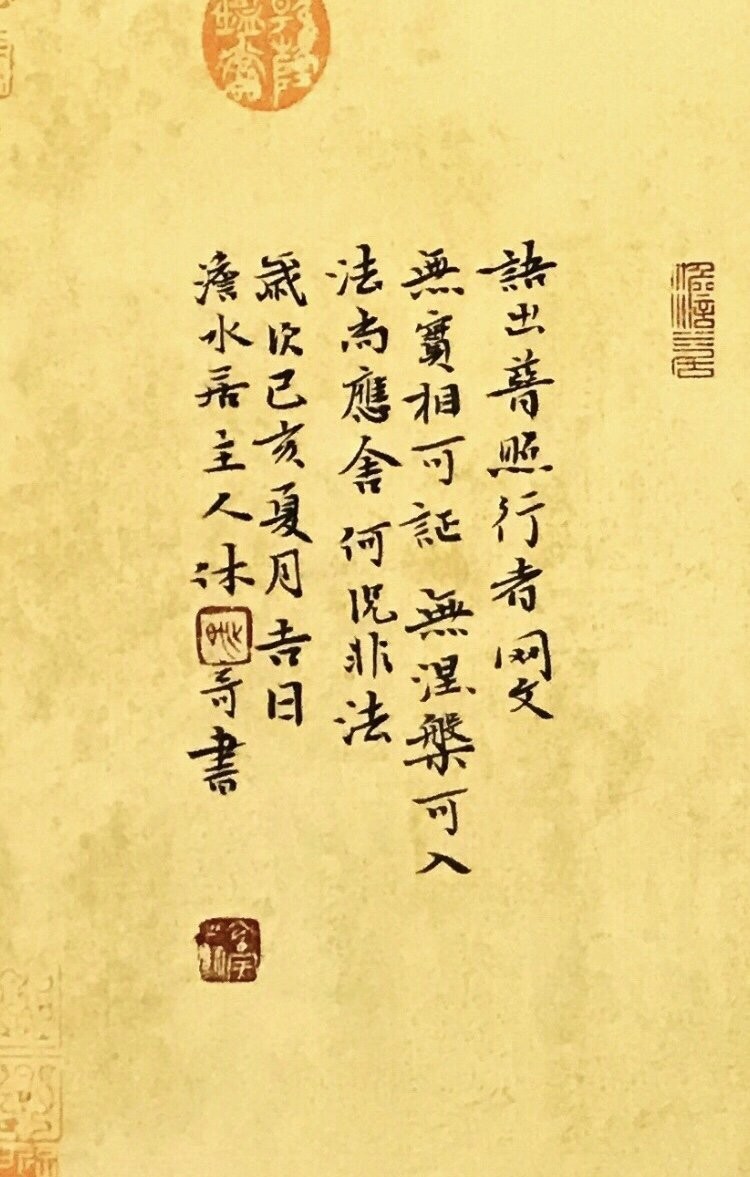 語出普照行者网文
無實相可証 無涅槃可入
法尚應舍何況非法
歲次己亥夏月吉日
澹水居主人休奇書